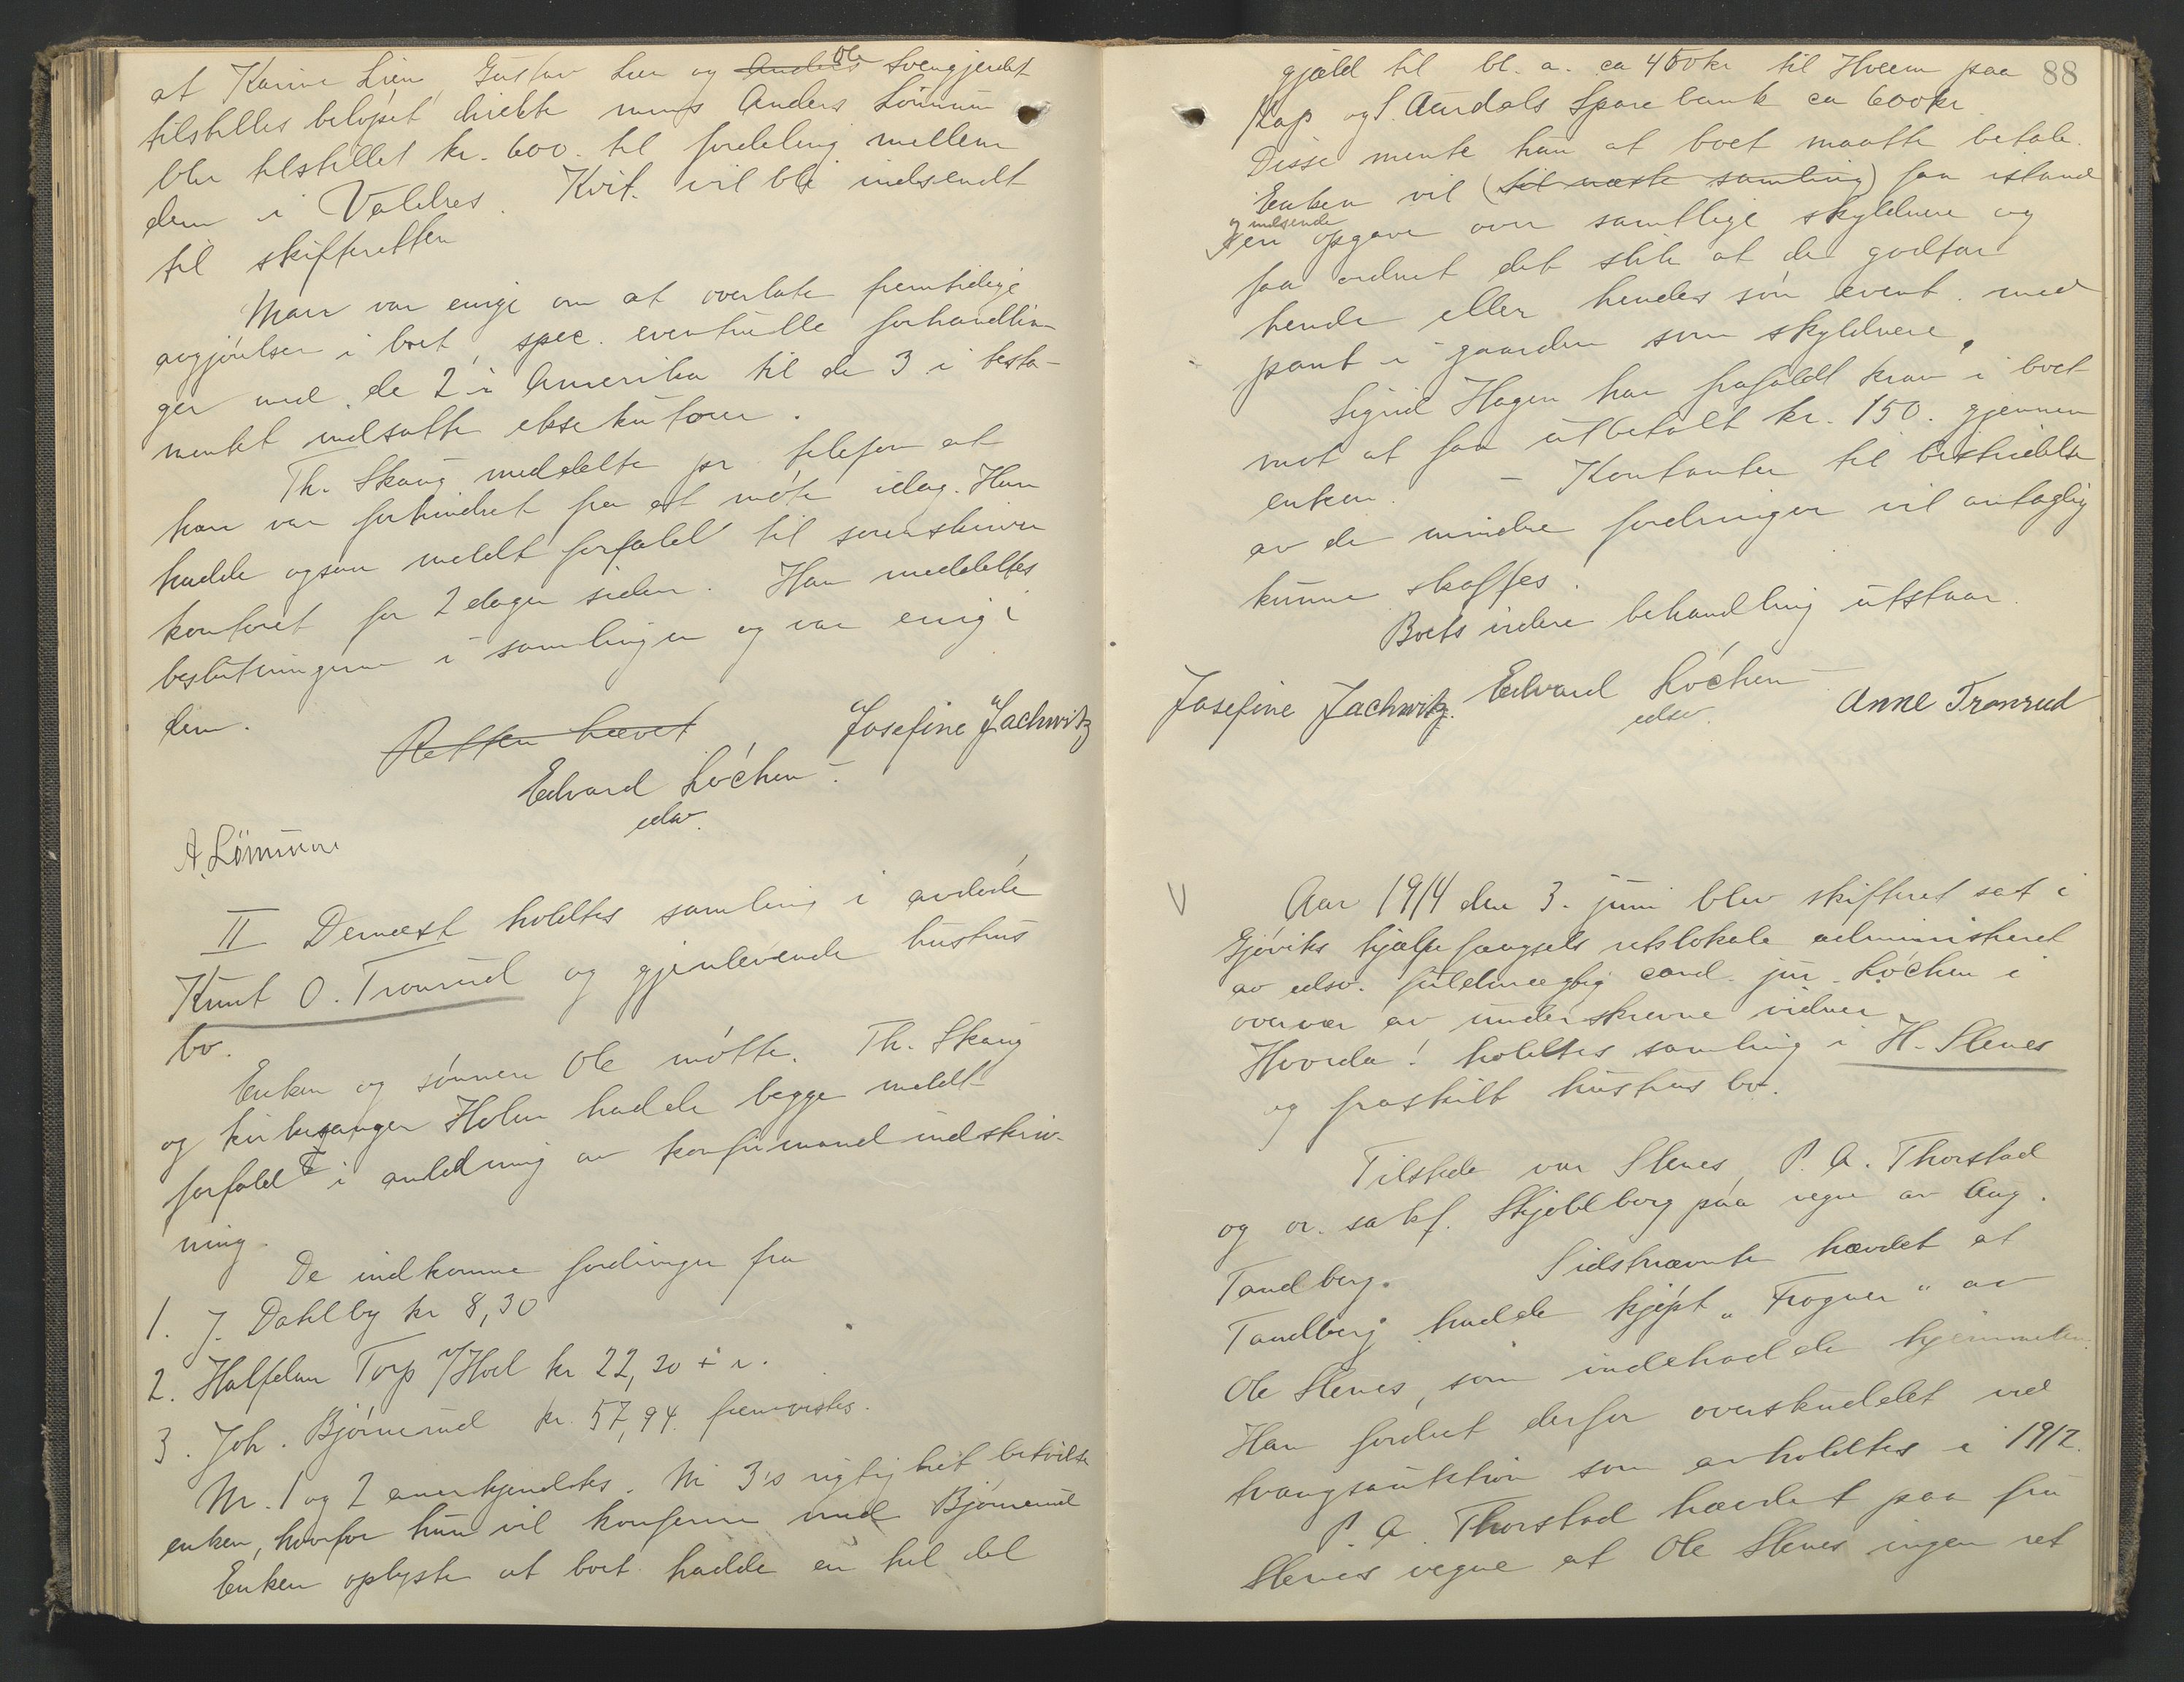 at Karine Lien, Gustav Lien og Anders Ole Svengjerdet
tilstilles beløpet direkte mens Anders Lømmen
blev tilstillet kr. 600. til fordeling mellem
dem i Valdres. Kvit. vil bli indsendt
til skifteretten
Man var enige om at overlate fremtidige
avgjørelser i boet, spec. eventuelle forhandlin-
ger med de 2 i Amerika til de 3 i testa-
mentet indsatte eksekutorer.
Th. Skaug meddelte pr. telefon at
han var forhindret fra at møte idag. Han
hadde ogsaa meldt forfald til sorenskriver
kontoret for 2 dager siden. Han meddeltes
beslutningerne i samlingen og var enig i
dem.
Retten hævet
Josefine Jachwitz
Edvard Løchen
edsv.
A. Lömmen
II Dernæst holdtes samling i avdøde
Knut O. Tronrud og gjenlevende hustrus
bo.
Enken og sønnen Ole møtte. Th. Skaug
og kirkesanger Holm hadde begge meldt
forfald i anledning av konfirmandindskriv-
ning.
De indkomne fordringer fra
1. J. Dahlby kr 8,30
2. Halfdan Torp v/Hoel kr 22,20 + r.
3. Joh. Bjørnerud kr. 57,94. fremvistes.
Nr. 1 og 2 anerkjendtes. Nr 3's rigtighet betvilte
enken, hvorfor hun vil konferere med Bjørnerud
Enken oplyste at boet hadde en hel del
88
gjæld til bl. a. ca 450 kr til Hveem paa
Kap og S. Aurdals Sparebank ca 600 kr
Disse mente hun at boet maatte betale.
Enken vil (til næste samling) faa istand
og indsende
en opgave over samtlige skyldnere og
faa ordnet det slik at de godtar
hende eller hendes søn event. med
pant i gaarden som skyldnere.
Sigrid Hagen har frafaldt krav i boet
mot at faa utbetalt kr. 150. gjennem
enken. - Kontanter til bestridelse
av de mindre fordringer vil antaglig
kunne skaffes.
Boets videre behandling utstaar.
Josefine Jachwitz. Edvard Løchen Anne Tronrud
edsv.
V
Aar 1914 den 3. juni blev skifteret sat i
Gjøviks hjælpefængsels retslokale administreret
av edsv. fuldmægtig cand. jur. Løchen i
overvær av underskrevne vidner
Hvorda! holdtes samling i H. Slenes
og fraskilt hustrus bo.
Tilstede var Slenes, P. A. Thorstad
og o.r. sakf. Skjoldborg paa vegne av Aug.
Tandberg. Sidstnævnte hævdet at
Tandberg hadde kjøpt "Frogner" av
Ole Slenes, som indehadde hjemmelen.
Han fordret derfor overskuddet ved
tvangsauktion som avholdtes i 1912.
P. A. Thorstad hævdet paa fru
Slenes vegne at Ole Slenes ingen ret